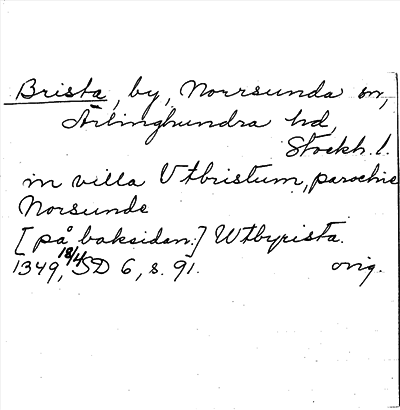 Brista, by, Norrsunda sn,
Ärlinghundra hd,
Stockh. l.
in villa Utbristum, parochie
Norsunde
[på baksidan:] Wtbyrista.
1349, 18/4, SD 6, s. 91. orig.